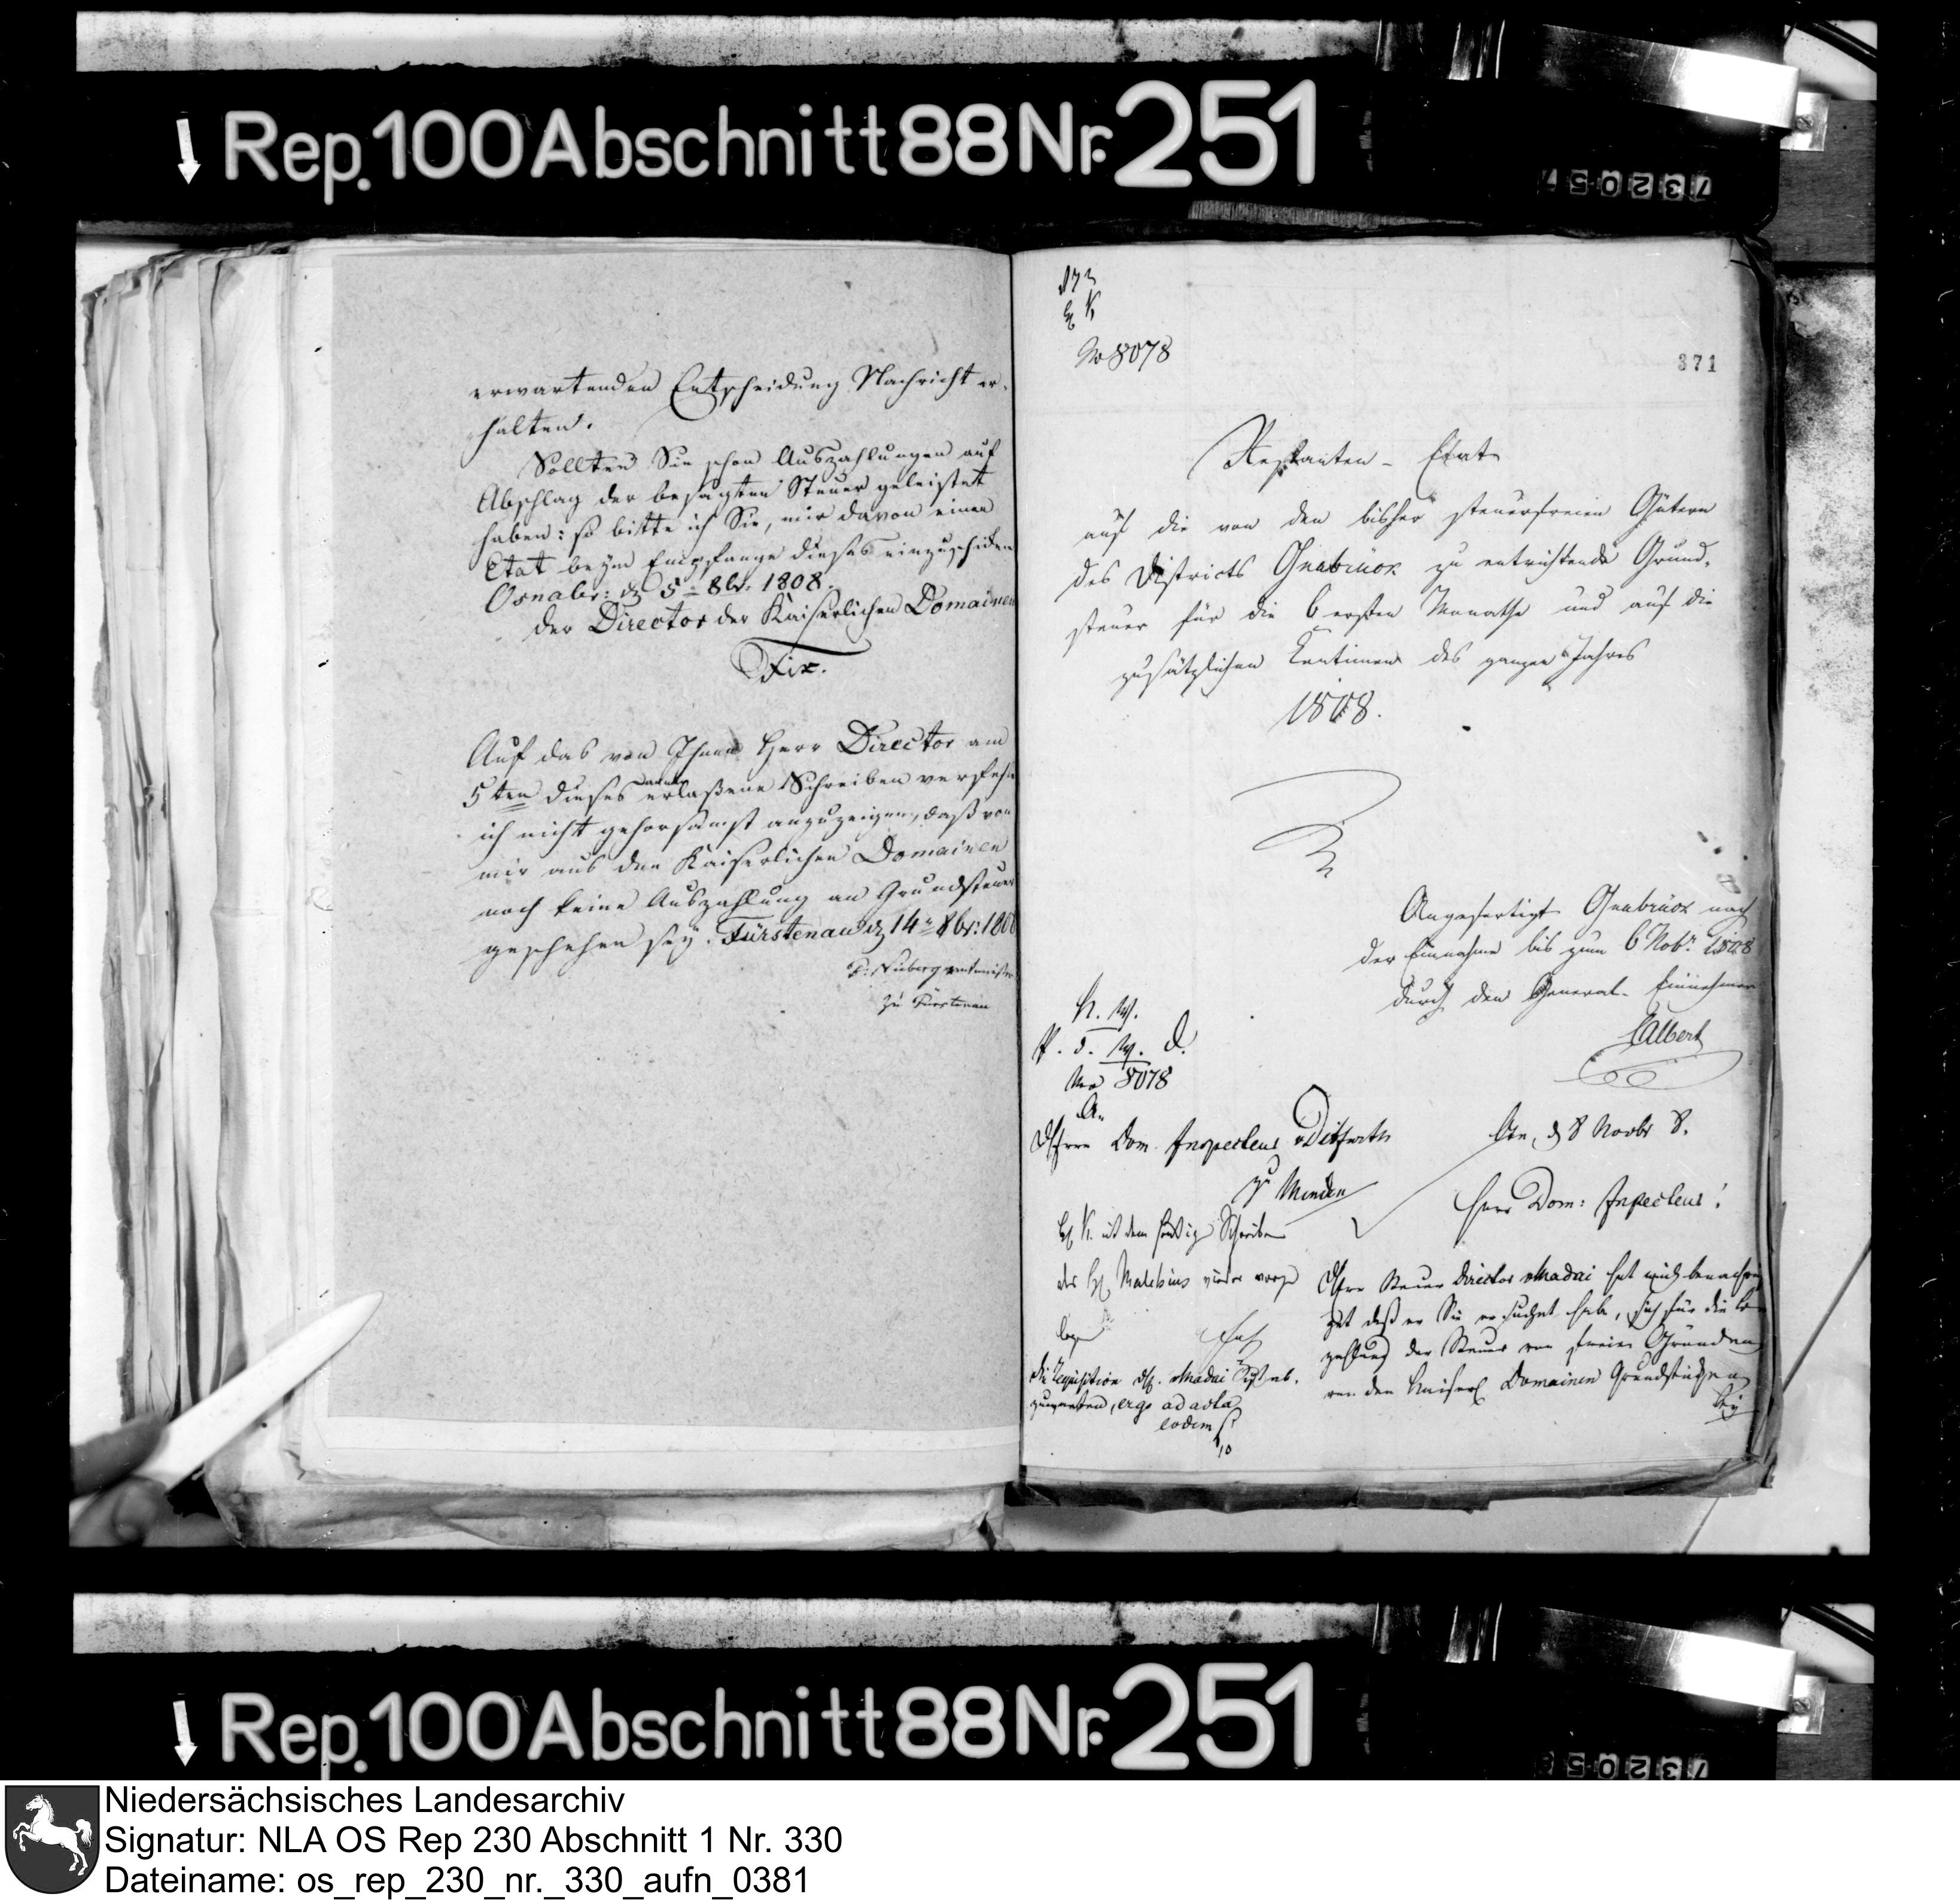 Rep. 100 Abschnitt 88 Nr. 251
732057
erwartenden Entscheidung Nachricht er-
halten.
Sollten Sie schon Auszahlungen auf
Abschlag der besagten Steuer geleistet
haben: so bitte ich Sie, mir davon einen
Etat beym Empfange dieses einzuschicken
Osnabr: d 5t 8br. 1808.
der Director der Kaiserlichen Domainen
Fix.
Auf das von Ihnen Herr Director am
5ten dieses erlaßene Schreiben verfehle
ich nicht gehorsamst anzuzeigen, daß von
mir aus den Kaiserlichen Domainen
noch keine Auszahlung an Grundsteuer
geschehen sey. Fürstenau d 14t 8br: 1808
zu Fürstenau
No 8078
371
Restanten - Etat
auf die von den bisher steuerfreien Gütern
des Districts Osnabrück zu entrichtende Grund-
steuer für die 6 ersten Monathe und auf die
zusätzlichen Centimen des ganzen Jahres
1808.
Angefertigt Osnabrück nach
der Einnahme bis zum 6 Nobr. 1808
durch den General-Einnehmer
Albert
No 8078
An
Herrn Dom. Inspecteur
zu Minden
Osn. d 8 Novbr 8.
Herr Dom: Inspecteur!
dem heutig Schreiben
Der Steuer Director Madai hat mich benachrich
tigt daß er Sie ersucht habe, sich für die Be
zahlung der Steuer von freien Gründen
von den Kaiserl Domainen Grundstücken
die Requisition Madai
ergo ad acta
eodem
Rep. 100 Abschnitt 88 Nr. 251
Niedersächsisches Landesarchiv
Signatur: NLA OS Rep 230 Abschnitt 1 Nr. 330
Dateiname: os_rep_230_nr._330_aufn_0381